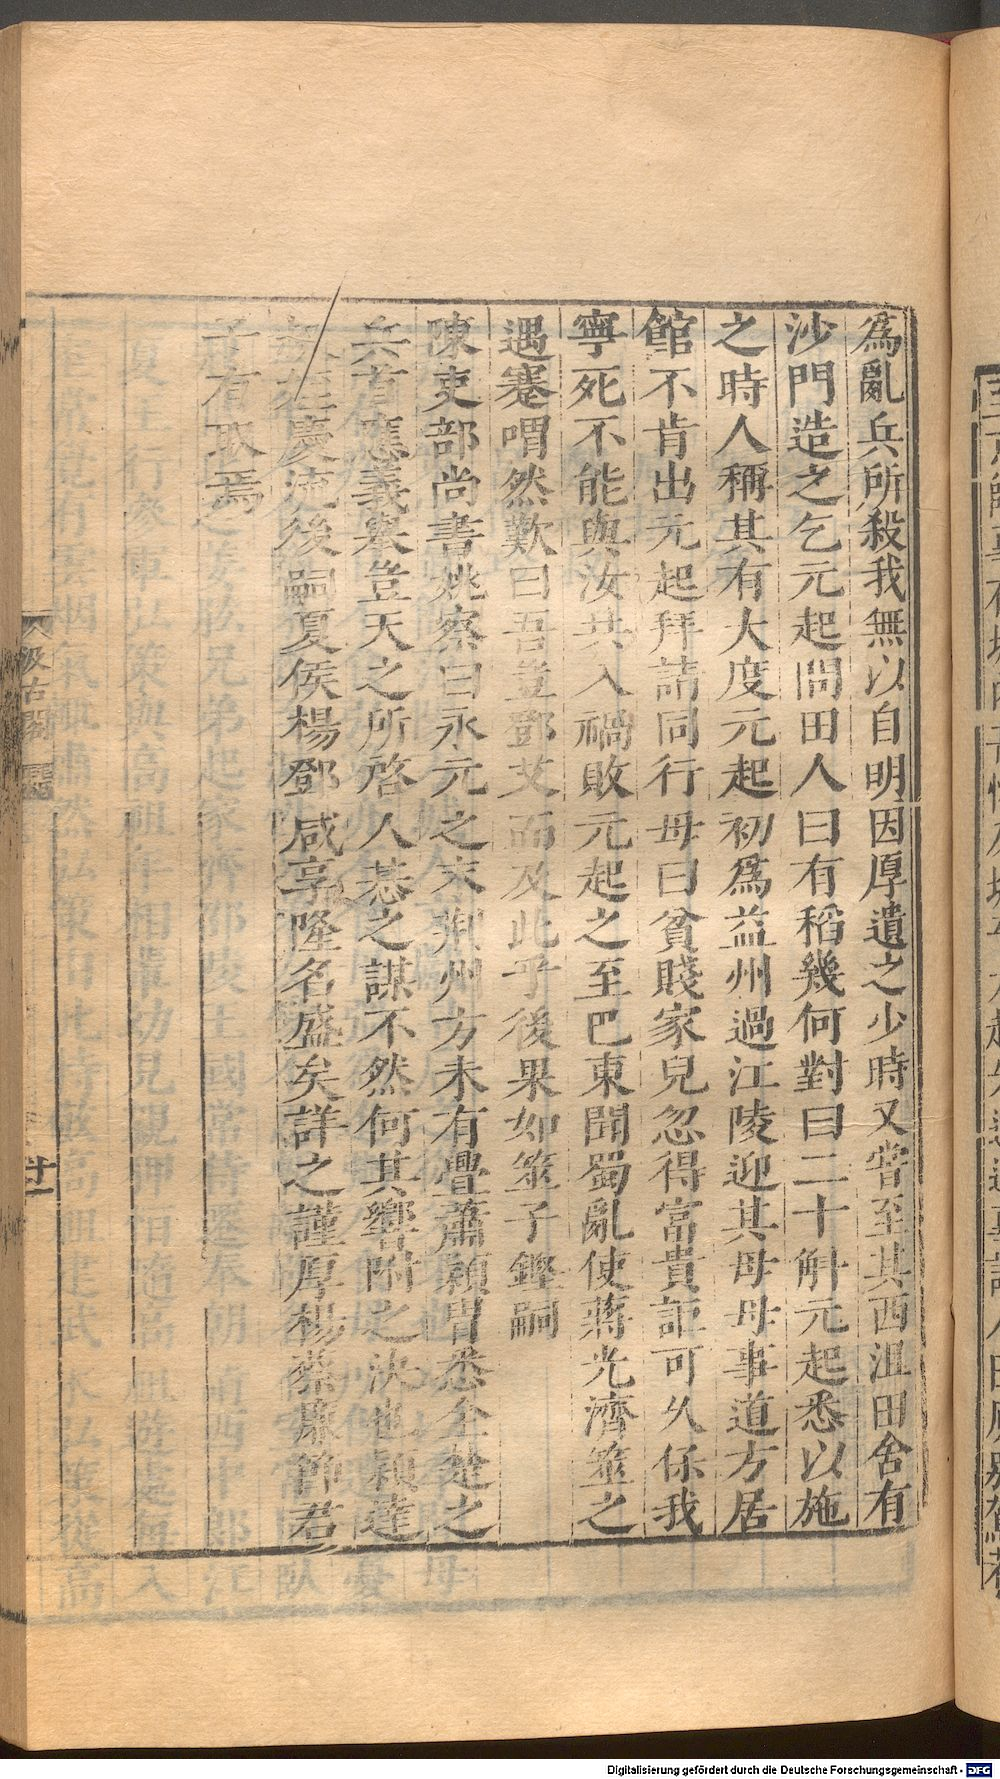 爲亂兵所殺我無以自明因厚遺之少時又嘗至其西沮田舍有
沙門造之乞元起問田人曰有稻幾何對曰二十斛元起悉以施
之時人稱其有大度元起初爲益州過江陵迎其母母事道方居
館不肯出元起拜請同行母曰貧賤家兒忽得富貴詎可久係我
寧死不能與汝共入禍敗元起之至巴東聞蜀亂使蔣光濟筮之
遇蹇喟然歎曰吾豈鄧艾而及此乎後果如筮子鏗嗣
陳吏部尚書姚察曰永元之末荆州方未有釁蕭穎胄悉全楚之
兵首應義舉豈天之所啓人惎之謀不然何其響附之決也穎達
慶流後嗣夏侯楊鄧咸享隆名盛矣詳之謹厚楊蔡廉節君
子有取焉
汲古閣
Digitalisierung gefördert durch die Deutsche Forschungsgemeinschaft - DFG